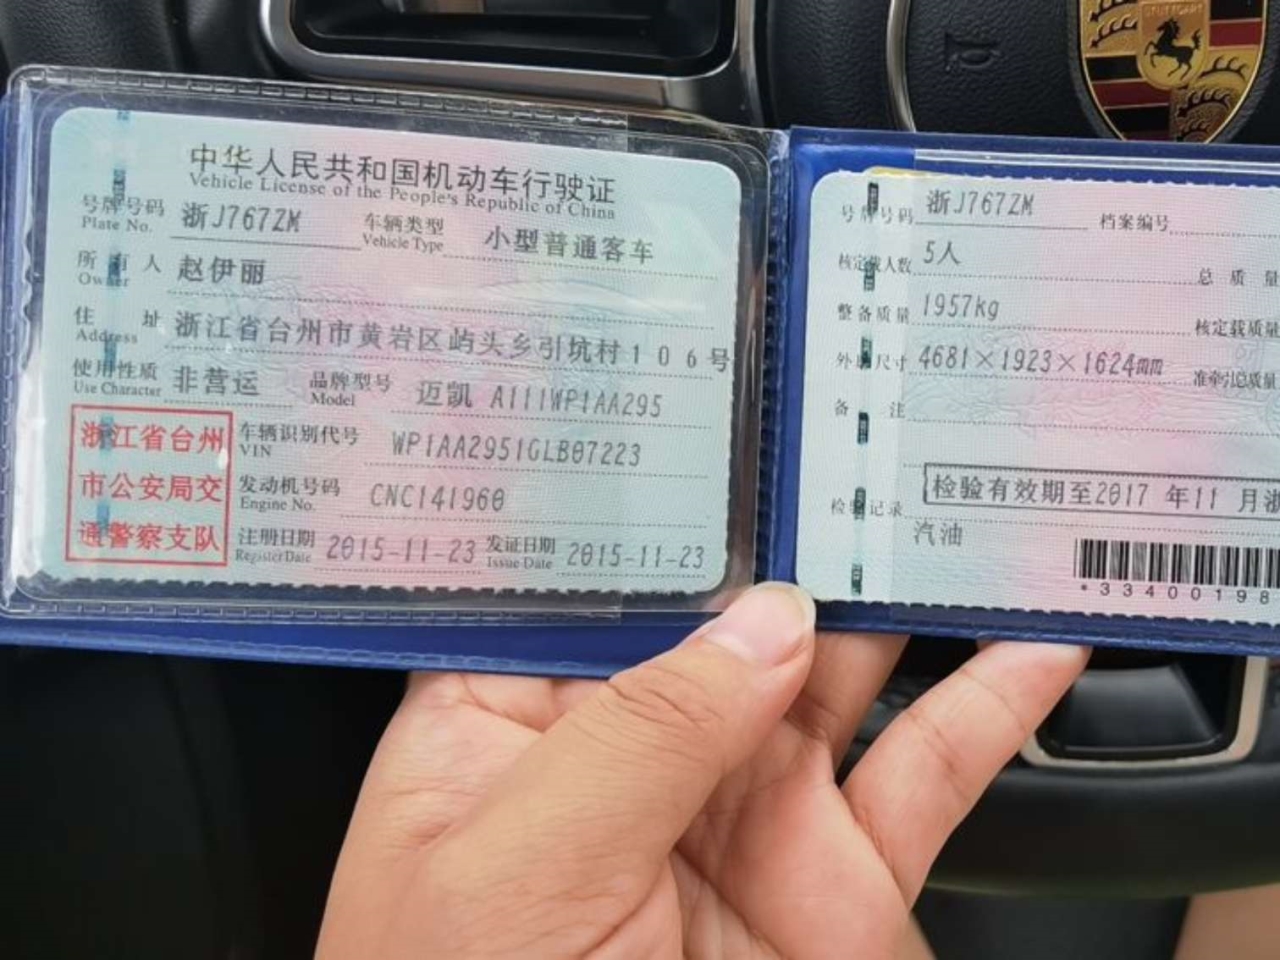 STUTTGART
中华人民共和国机动车行驶证
Vehicle License of the People's Republic of China
号牌号码 浙J767ZM 车辆类型 小型普通客车
Plate No. Vehicle Type
所有人 赵伊丽
Owner
住址 浙江省台州市黄岩区屿头乡引坑村106号
Address
使用性质 非营运 品牌型号 迈凯 A111WP1AA295
Use Character Model
浙江省台州
市公安局交
通警察支队
车辆识别代号 WP1AA2951GLB07223
VIN
发动机号码 CNC141960
Engine No.
注册日期 2015-11-23 发证日期 2015-11-23
Register Date Issue Date
号牌号码 浙J767ZM 档案编号
核定载人数 5人 总质量
整备质量 1957kg 核定载质量
外廓尺寸 4681×1923×1624mm 准牵引总质量
备注
检验记录 检验有效期至2017年11月浙
汽油
*33400198